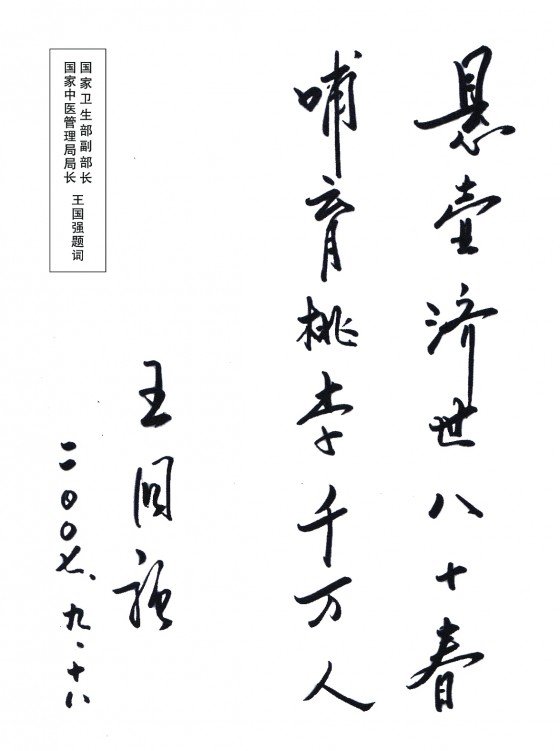 悬壶济世八十春
哺育桃李千万人
王国强
二〇〇七、九、十八
国家卫生部副部长
国家中医管理局局长 王国强题词